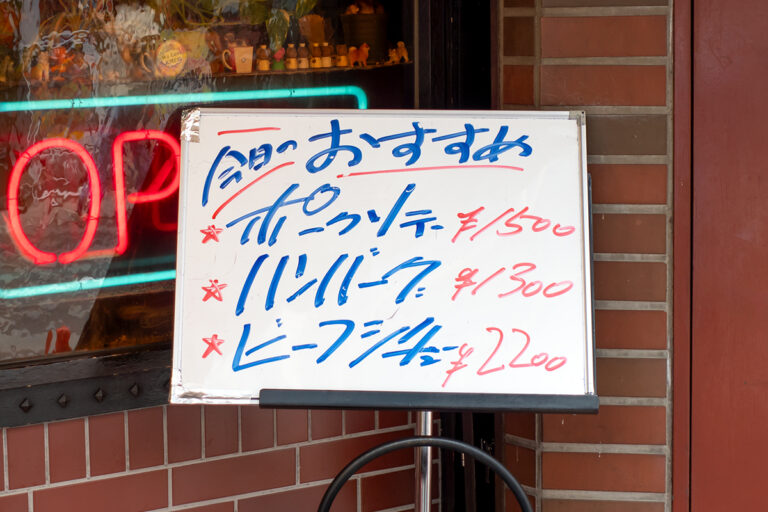 OP
今日の おすすめ
★ ポークソテー ¥1500
★ ハンバーグ ¥1300
★ ビーフシチュー ¥2200